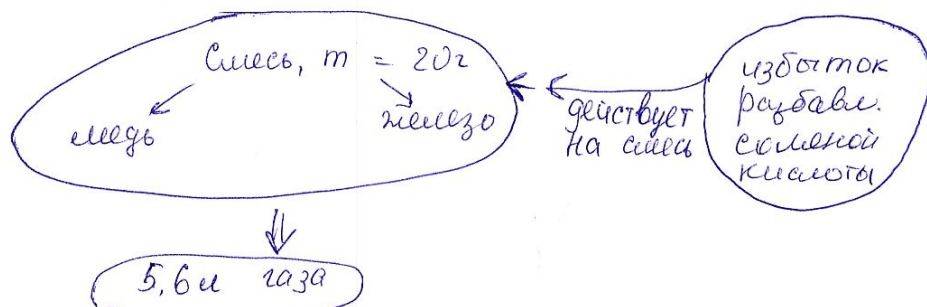 Смесь, m = 20г
медь
железо
действует
на смесь
избыток
разбавл.
соляной
кислоты
5,6л газа